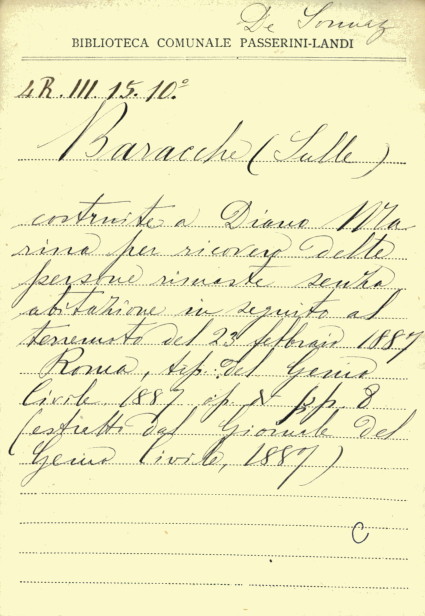 De Sonnaz
BIBLIOTECA COMUNALE PASSERINI-LANDI
4R. III. 15. 10.º
Baracche (Sulle)
costruite a Diano Ma
rina per ricovero delle
persone rimaste senza
abitazione in seguito al
terremoto del 23 febbraio 1887
Roma, tip.º del Genio
Civile 1887 op pp. 8
(estratti dal Giornale del
Genio Civile, 1887)
C